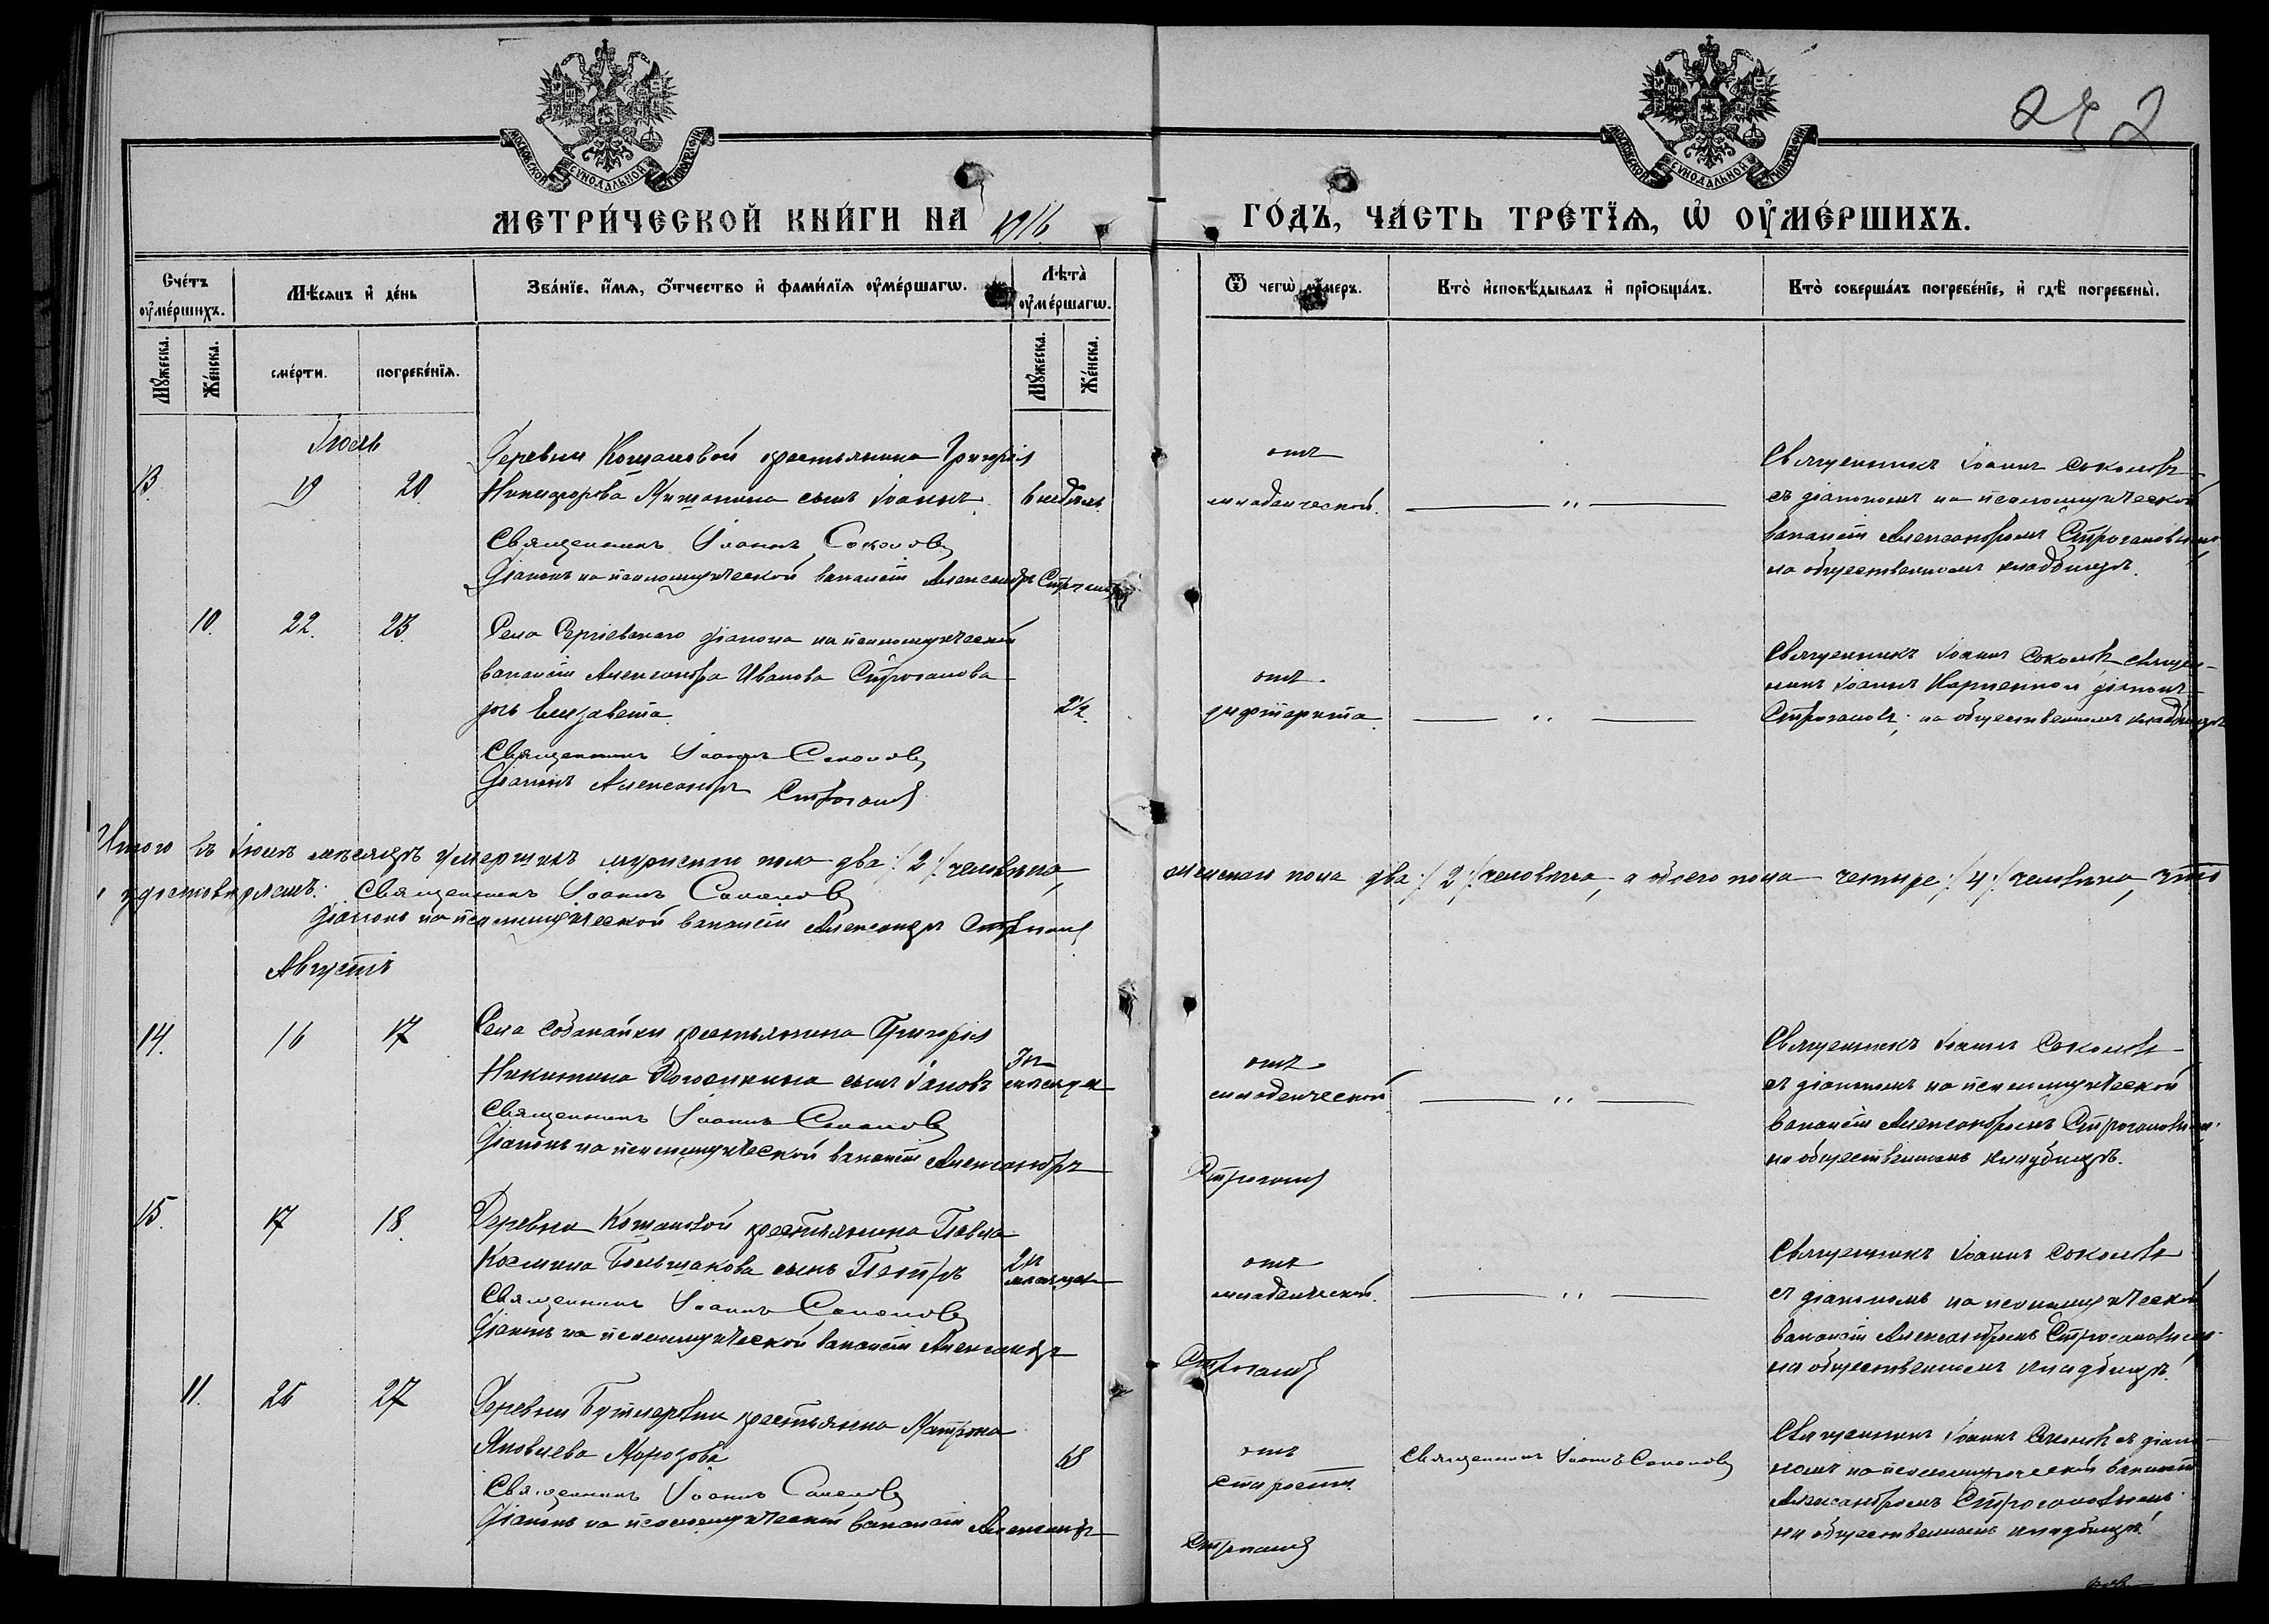 МОСКОВСКОЙ СѴНОДАЛЬНОЙ ТИПОГРАФІИ
МОСКОВСКОЙ СѴНОДАЛЬНОЙ ТИПОГРАФІИ
МЕТРИ́ЧЕСКОЙ КНИ́ГИ НА 1916
ГО́ДЪ, ЧА́СТЬ ТРЕ́ТЇѦ, Ѡ҆ ОУ҆МЕ́РШИХЪ.
Сче́тъ оу҆ме́ршихъ.
Мѣ́сяцъ и҆ де́нь
Зва́нїе, и҆́мѧ, ѻ҆́тчество и҆ фами́лїѧ оу҆ме́ршагѡ.
Лѣ́та̀ оу҆ме́ршагѡ.
Ѿ чегѡ̀ оу҆́меръ.
Кто̀ и҆сповѣ́дывалъ и҆ прїѡбща́лъ.
Кто̀ соверша́лъ погребе́нїе, и҆ гдѣ̀ погребены̀.
Мꙋ́жеска.
Же́нска.
сме́рти.
погребе́нїѧ.
Мꙋ́жеска.
Же́нска.
Іюль
13. 19 20 Деревни Кошановой крестьянина Григорія
Никифорова сынъ Іоаннъ 6 недѣль
Священникъ Іоаннъ Соколовъ
Діаконъ на псаломщической вакансіи Александръ Строгановъ
отъ
младенческой. — " —
Священникъ Іоаннъ Соколовъ
съ діакономъ на псаломщической
вакансіи Александромъ Строгановымъ
на общественномъ кладбищѣ.
10. 22. 23. Села Сергіевскаго діакона на псаломщической
вакансіи Александра Иванова Строганова
дочь Елизавета
Священникъ Іоаннъ Соколовъ
Діаконъ Александръ Строгановъ
отъ
дифтерита — " —
Священникъ Іоаннъ Соколовъ священ-
никъ Іоаннъ діаконъ
Строгановъ; на общественномъ кладбищѣ
Итого въ Іюлѣ мѣсяцѣ умершихъ мужескаго пола два /2/ человѣка, женскаго пола два /2/ человѣка, а обоего пола четыре /4/ человѣка, что
и удостовѣряемъ: Священникъ Іоаннъ Соколовъ
Діаконъ на псаломщической вакансіи Александръ Строгановъ
Августъ
14. 16 17 Села Собакайки крестьянина Григорія
Никитина сынъ Іаковъ 3х мѣсяцев
Священникъ Іоаннъ Соколовъ
Діаконъ на псаломщической вакансіи Александръ Строгановъ
отъ
младенческой — " —
Священникъ Іоаннъ Соколовъ
съ діакономъ на псаломщической
вакансіи Александромъ Строгановымъ
на общественномъ кладбищѣ.
15. 17 18. Деревни Кошановой крестьянина Павла
Космина Большакова сынъ Петръ 2х мѣсяцев
Священникъ Іоаннъ Соколовъ
Діаконъ на псаломщической вакансіи Александръ Строгановъ
отъ
младенческой. — " —
Священникъ Іоаннъ Соколовъ
съ діакономъ на псаломщической
вакансіи Александромъ Строгановымъ
на общественномъ кладбищѣ.
11. 27 Деревни Бутлеровки крестьянка Матрона
Яковлева Морозова 68
Священникъ Іоаннъ Соколовъ
Діаконъ на псаломщической вакансіи Александръ Строгановъ
отъ
старости.
Священникъ Іоаннъ Соколовъ
Священникъ Іоаннъ Соколовъ съ діако-
номъ на псаломщической вакансіи
Александромъ Строгановымъ
на общественномъ кладбищѣ.